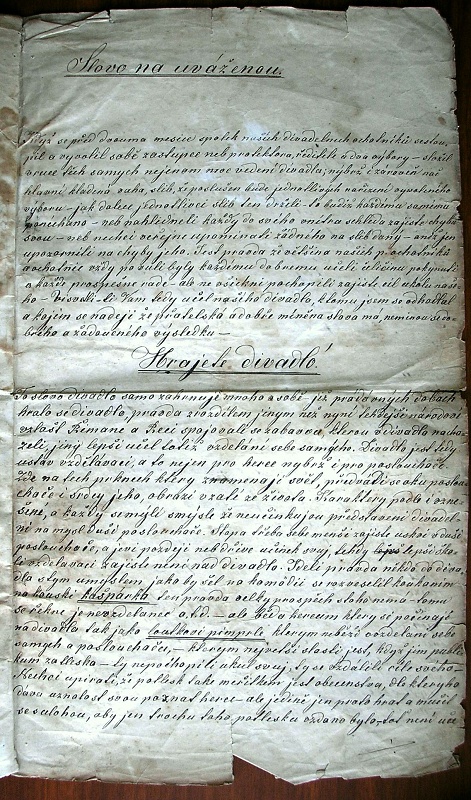 Slovo na uváženou.
Když se před dvouma mesíce spolek našich divadelnich ochotníků sestou
pil a vyvolil sobě zastupce neb protektora, ředitele a dva výbory – složil
vruce těch samych nejenom moc vedení divadla, nýbrž i zároveň na
hlavní kladená váha, slib, že poslušen bude jednotlivých nařízení vyvoleného
výboru – jak dalece jednotlivci slib ten drželi – to budiž každému samému
ponecháno – neb nahlédneli každý do svého vnitra shledá zajiste chybu
svou – neb nechci veřejně upominati žádného na slib daný – aniž jen
upozorniti na chyby jeho. Jest pravda že většina našich p. ochotníků
a ochotnic vždy povolí byly každemu dobremu učeli
a každé prospesne radě – ale ne všickni pochopili zajiste cíl ukolu naše
ho – tedy učel našeho divadla, ktomu jsem se odhodlal
a kojím se nadějí že přatelská a dobře míněna slova má, neminou se do
brého a žádoucného výsledku –
Hrajete divadlo.
To slovo divadlo samo zahrnuje mnoho v sobě již pradávných dobach
hralo se divadlo, pravda zrozdílem jiným než nyní tehdejší národové
vzlašť Římane a Řeci spojovali se zabavou, kterou v divadle nachá
zeli, jiný lepší učel totiž vzdelani sebe samých. Divadlo jest tedy
ustav vzdělávací, a to nejen pro herce nybrž i pro posluchače.
Zde na tech prknech ktery znamenají svět, předvadí se oku poslu
chače i srdci jeho, obrazi vzaté ze života. Karaktery podle i vzne
šene, a každý
ní na mysl duši poslouchače. Stopa třeba sebe menše zajiste v duši
poslouchače, a jeví později neb dříve učinek svuj, tehdy lepší ško
li vzdelavací zajiste není nad divadlo. Jdeli pravda někdo do diva
dla s tym umyslem jako by šel na komedii se rozveselil
na kousku kašparka ten pravda celky prospěch stoho nemá – tomu
se řekne je nevzdělanec a.t.d. – ale běda hercum ktery se počinají
na divadle tak jako loutkoví pimprle kterým nebeží o vzdelani sebe
samych a poslouchačů, – kterým největší slastí jest, když jim publi
kum zatleska – ty nepochopili ukol svuj, ty se vzdálili cíle svého
Nechci upírati, že potlesk take meřítkem jest obecenstva, dle kteryho
dává uznalost svou poznat herci – ale jedině jen proto hrat a mučit
se s ulohou, aby jen trochu toho potlesku vzdano bylo – toť není uče